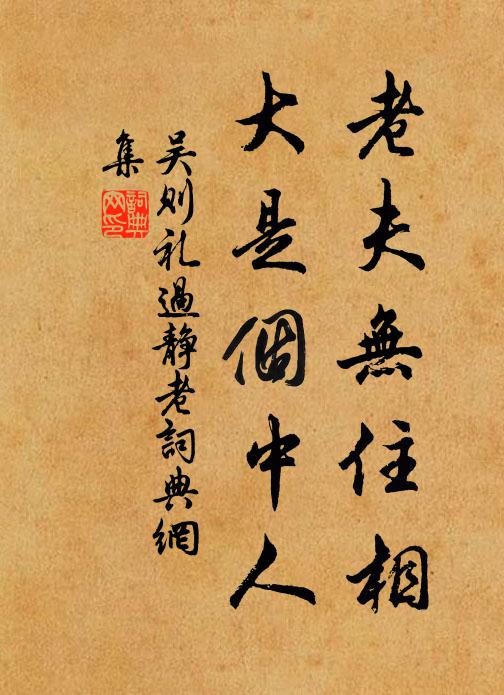 老夫無住相
大是個中人
吴则礼過静老詞典網
集
詞典網印